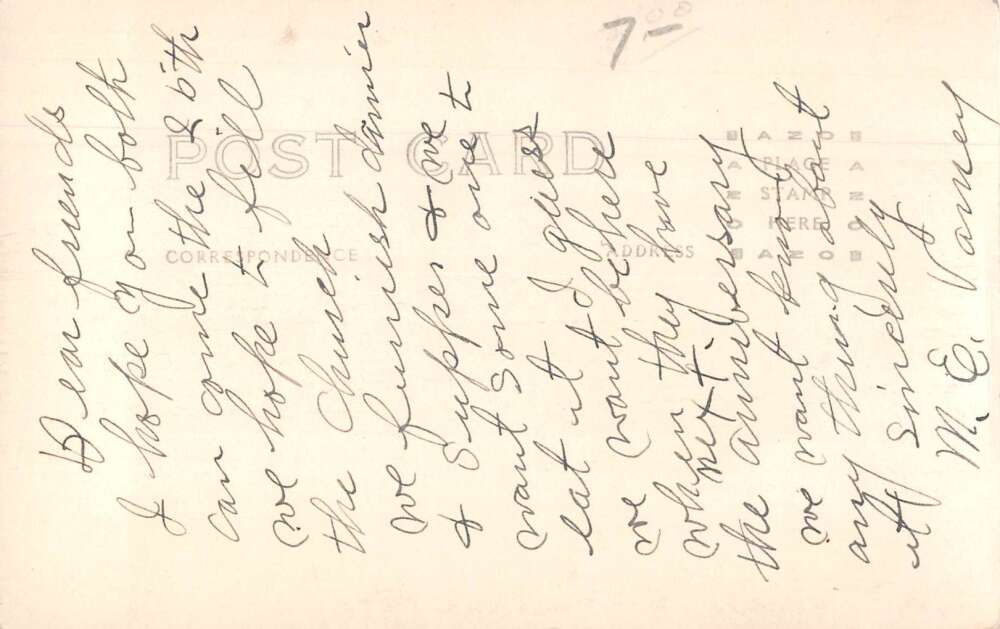 Dear friends
I hope you both
can come the 26th
we hope to fill
the Church
we furnish dinner
& Supper & we
want Some one to
eat it I guess
we wont be here
when they have
next
the anniversary
we wont know
any thing about
it Sincerely
M. E.
7-00
POST CARD
CORRESPONDENCE
ADDRESS
PLACE
STAMP
HERE